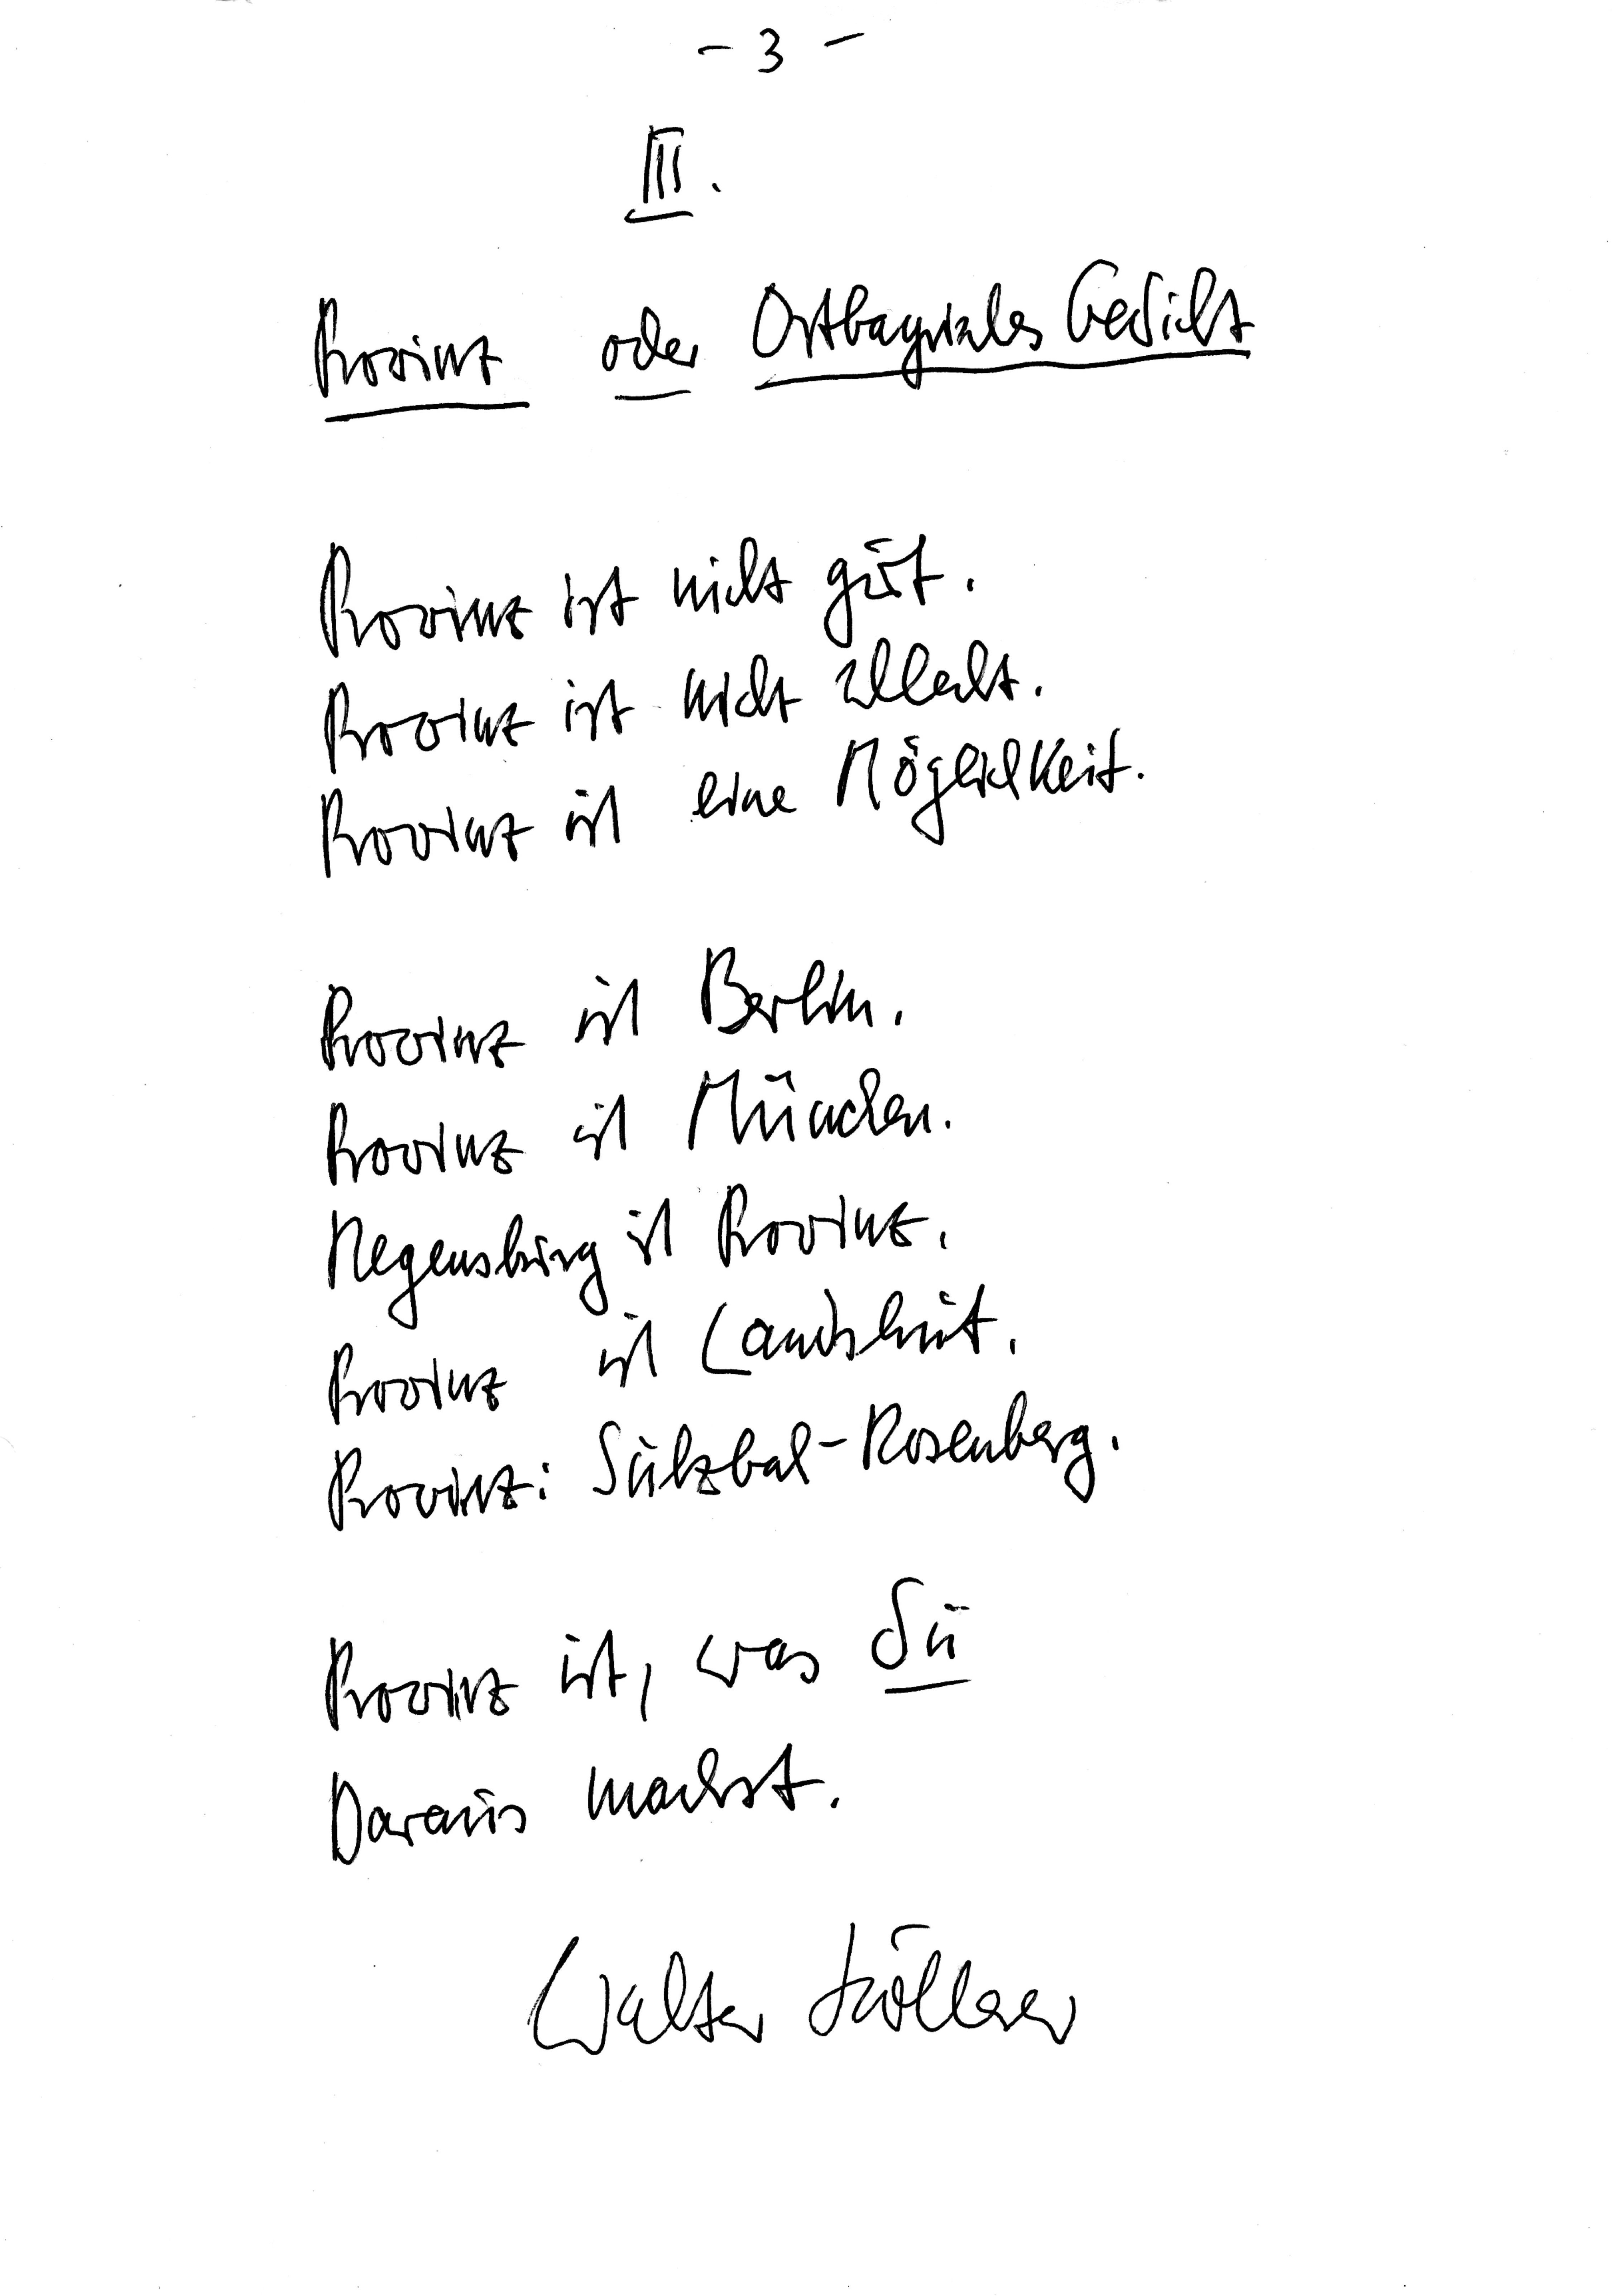 - 3 -
III.
Provinz oder Ostbayrisches Gedicht
Provinz ist nicht gut.
Provinz ist nicht schlecht.
Provinz ist eine Möglichkeit.
Provinz ist Berlin.
Provinz ist München.
Regensburg ist Provinz.
Provinz ist Landshut.
Provinz: Sulzbach-Rosenberg.
Provinz ist, was Du
Daraus machst.
Walter Höllerer